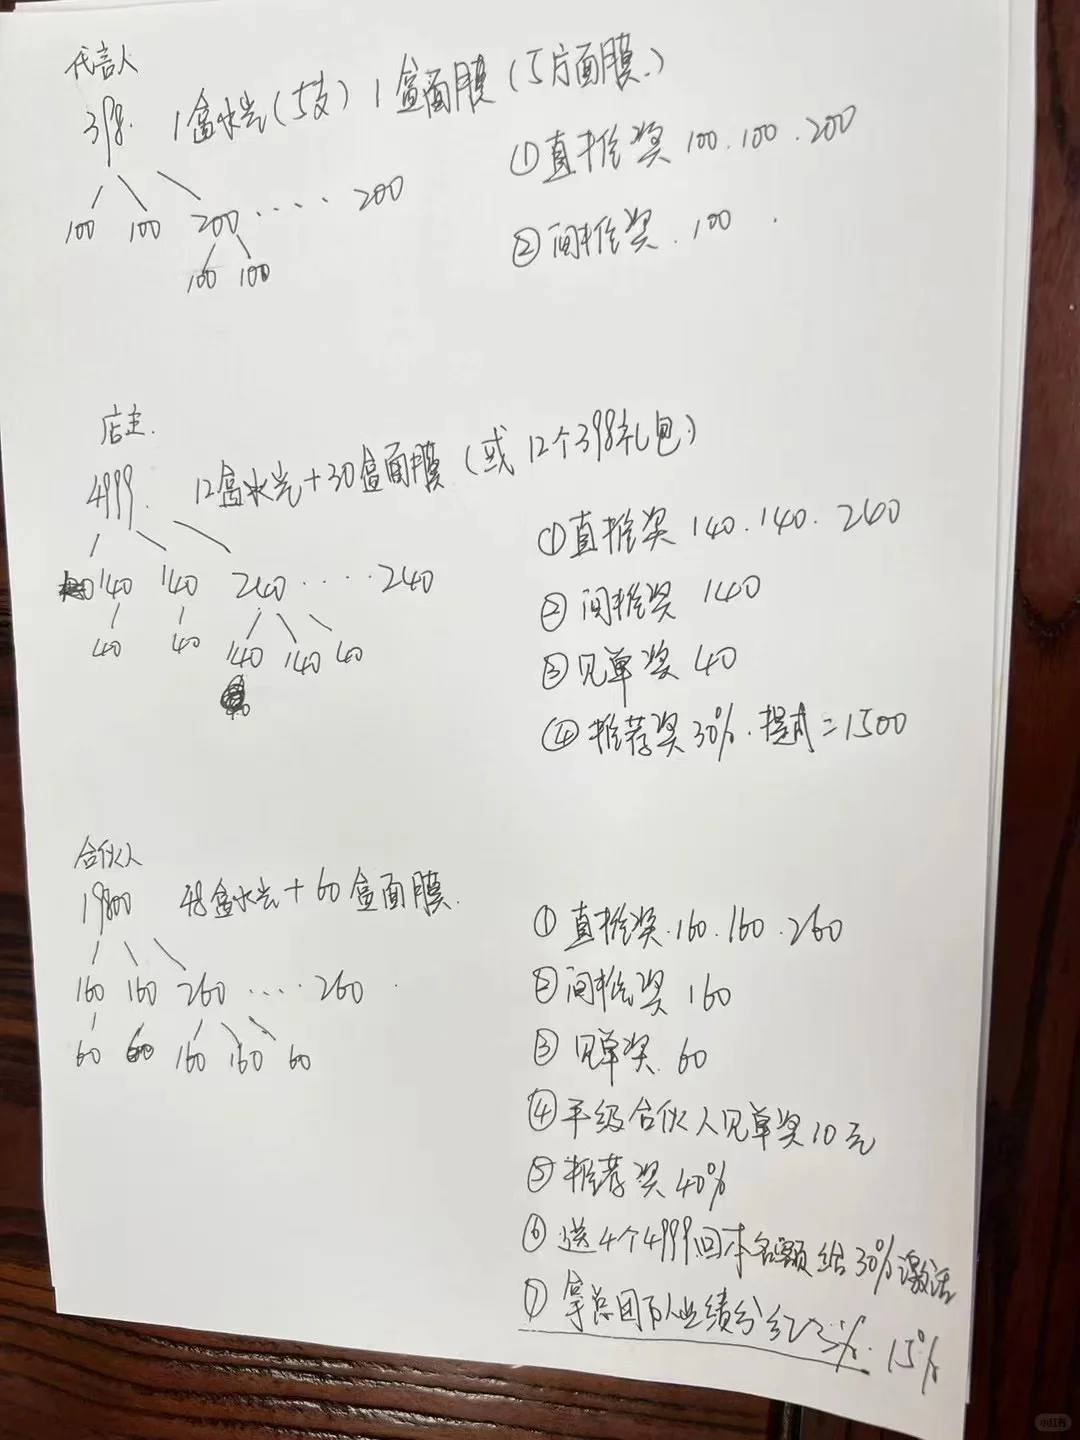 代言人
398. 1盒水光(5支) 1盒面膜(5片面膜.)
100 100 200 .... 200
100 100
①直推奖 100.100.200
②间推奖.100
店主.
4999. 12盒水光+30盒面膜(或12个398礼包)
140 140 240 .... 240
40 40 140 140 40
①直推奖 140.140.240
②间推奖 140
③见单奖 40
④推荐奖30%.提成=1500
合伙人
19800 48盒水光+60盒面膜.
160 160 260 .... 260
60 60 160 160 60
①直推奖.160.160.260
②间推奖 160
③见单奖.60
④平级合伙人见单奖10元
⑤推荐奖40%
⑥送4个4999回本名额给30%激活
⑦拿总团队业绩分红 15%
小红书